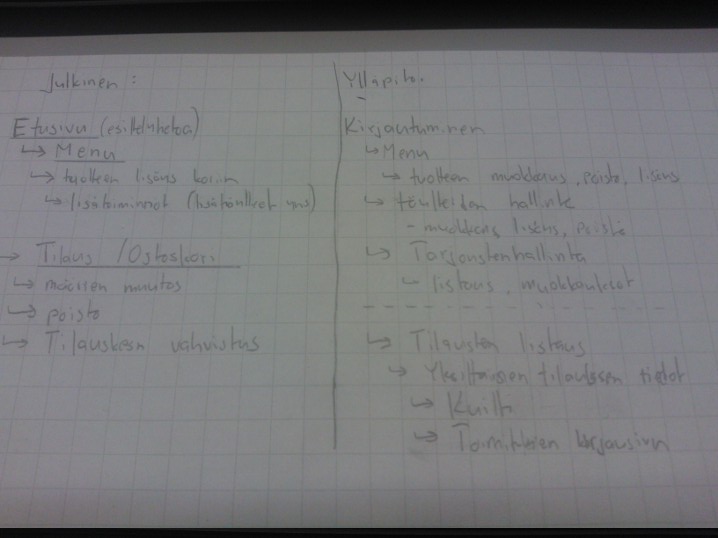 Julkinen :
Etusivu (esittelytietoa)
↳ Menu
↳ tuotteen lisäys koriin
↳ lisätoiminnot (lisätäytteet yms)
→ Tilaus / Ostoskori
↳ määrien muutos
↳ poisto
↳ Tilauksen vahvistus
Ylläpito.
Kirjautuminen
↳ Menu
↳ tuotteen muokkaus, poisto, lisäys
↳ täytteiden hallinta
- muokkaus lisäys, poisto
↳ Tarjoustenhallinta
- listaus, muokkaukset
↳ Tilausten listaus
↳ Yksittäisen tilauksen tiedot
↳ Kuitti
↳ Toimituksen